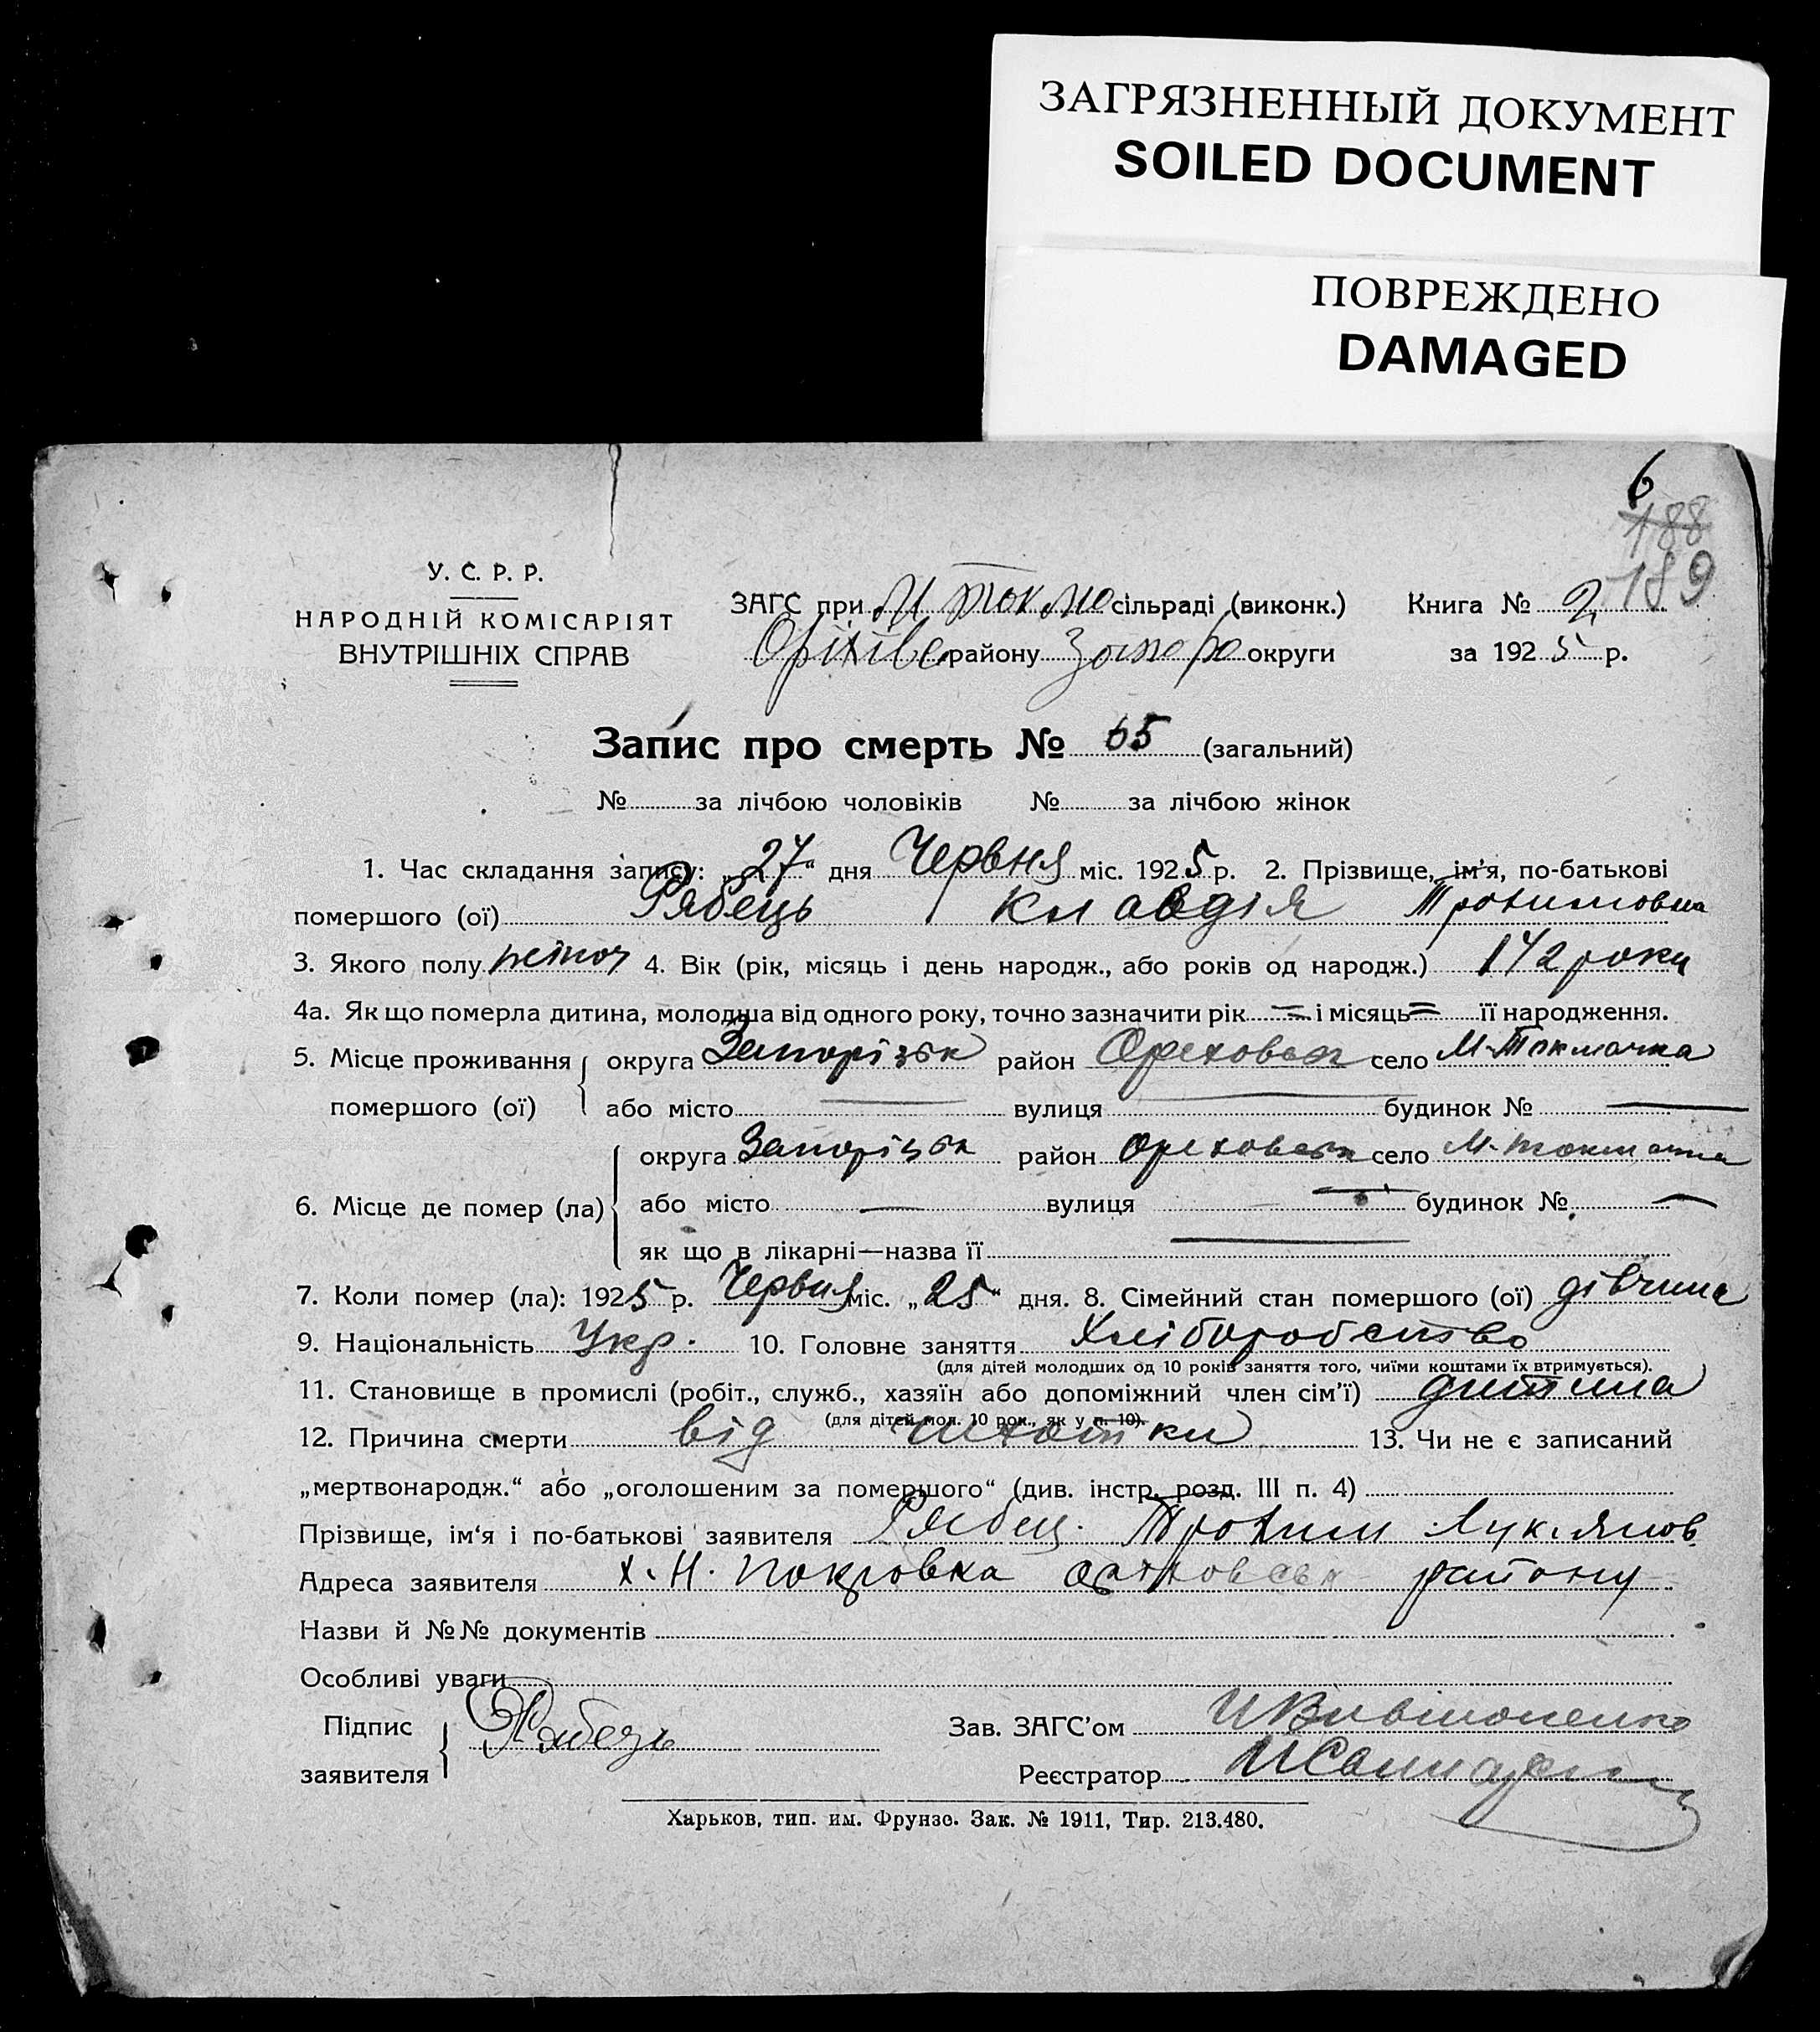 ЗАГРЯЗНЕННЫЙ ДОКУМЕНТ
SOILED DOCUMENT
ПОВРЕЖДЕНО
DAMAGED
6
188
189
У. С. Р. Р.
НАРОДНІЙ КОМІСАРІЯТ
ВНУТРІШНІХ СПРАВ
ЗАГС при М Токма сільраді (виконк.) Книга № 2
Оріхівс району Запор округи за 1925 р.
Запис про смерть № 65 (загальний)
№ за лічбою чоловіків № за лічбою жінок
1. Час складання запису: „27“ дня Червня міс. 1925 р. 2. Прізвище, ім’я, по-батькові
помершого (ої) Рябець Клавдія Трохимовна
3. Якого полу жіноч 4. Вік (рік, місяць і день народж., або років од народж.) 1 1/2 роки
4а. Як що померла дитина, молодша від одного року, точно зазначити рік = і місяць = її народження.
5. Місце проживання помершого (ої) округа Запорізьк район Ореховськ село М-Токмачка
або місто — вулиця — будинок № —
6. Місце де помер (ла) округа Запорізьк район Ореховськ село М-Токмачка
або місто — вулиця — будинок № —
як що в лікарні—назва її —
7. Коли помер (ла): 1925 р. Червня міс. „25“ дня. 8. Сімейний стан помершого (ої) дівчина
9. Національність Укр. 10. Головне заняття Хліборобство
(для дітей молодших од 10 років заняття того, чиїми коштами їх втримується).
11. Становище в промислі (робіт., служб., хазяїн або допоміжний член сім’ї) дитина
(для дітей мол. 10 рок., як у п. 10).
12. Причина смерти від 13. Чи не є записаний
„мертвонародж.“ або „оголошеним за помершого“ (див. інстр. розд. III п. 4)
Прізвище, ім‘я і по-батькові заявителя Рябець Трохим Лук‘янов
Адреса заявителя х. Н. Покровка району
Назви й №№ документів
Особливі уваги
Підпис заявителя Рябець Зав. ЗАГС’ом
Реєстратор
Харьков, тип. им. Фрунзе. Зак. № 1911, Тир. 213.480.